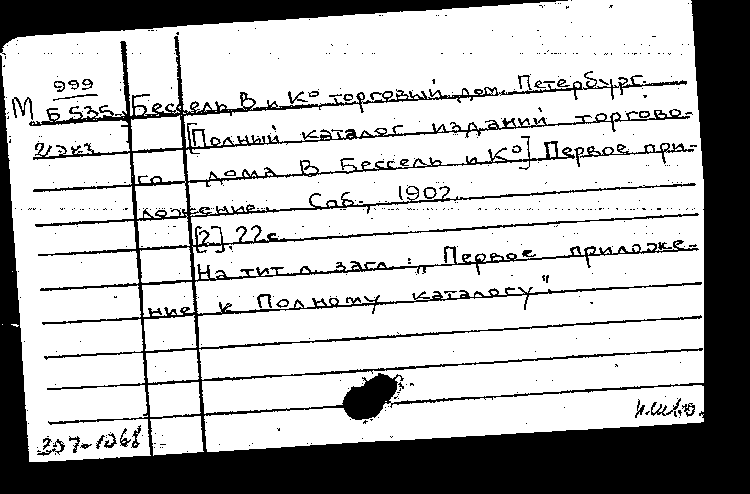 999
М Б 535 Бессель, В и К° торговый дом. Петербург.
2/экз [Полный каталог изданий торгово-
го дома В Бессель и К°] Первое при-
ложение. Спб., 1902.
[2], 22 с.
На тит л. загл.: „Первое приложе-
ние к Полному каталогу".
207-1068